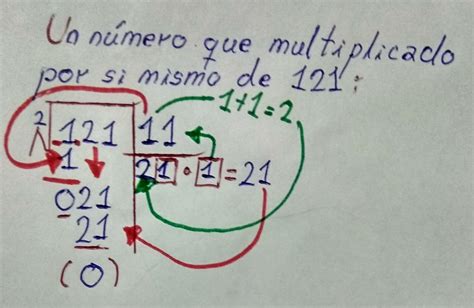 Un número que multiplicado
por si mismo de 121:
1+1=2
2 1.21 11
1 21·1=21
021
21
(0)